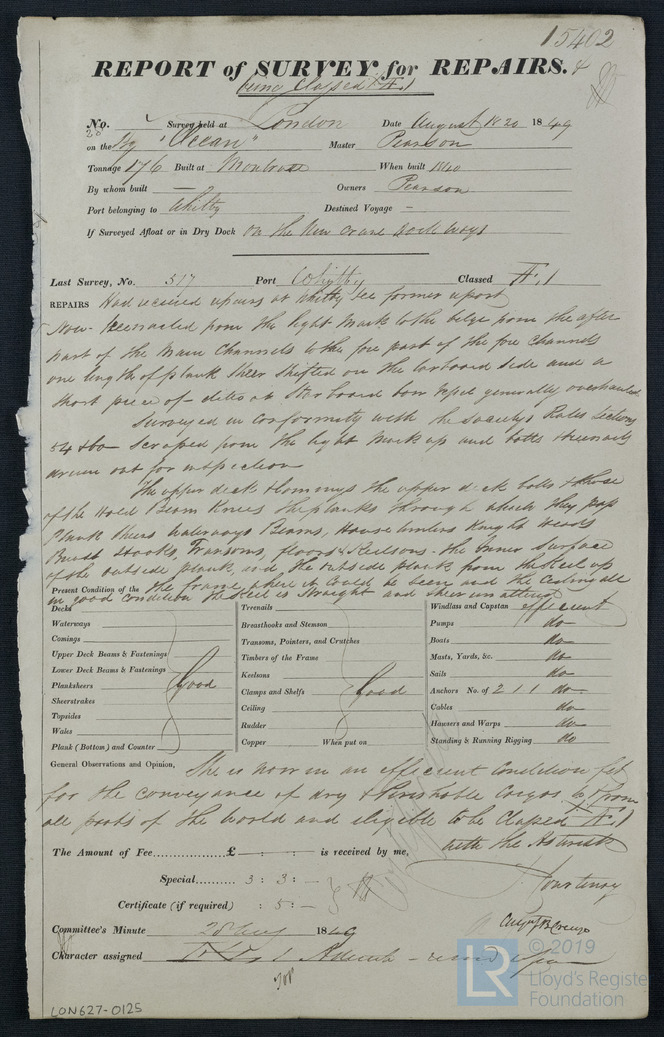 15402
REPORT of SURVEY for REPAIRS. &
being Classed Æ 1
No. Survey held at London Date August 18 20 1849
28
on the Bg "Ocean" Master Pearson
Tonnage 176 Built at Montrose When built 1840
By whom built — Owners Pearson
Port belonging to Whitby Destined Voyage –
If Surveyed Afloat or in Dry Dock on the New Crane Dock Ways
Last Survey, No. 517 Port Whitby Classed Æ.1
REPAIRS Had received repairs at Whitby see former report
Now from the light mark to the from the after
part of the Main Channels to the fore part of the fore channels
one length of plank sheer shifted on the larboard side and a
short piece of ditto at Starboard bow generally overhauled
Surveyed in conformity with the Society's Rules Sections
54 scraped from the light mark up and bolts & treenails
driven out for inspection
The upper deck & the upper deck bolts & those
of the Hold Beam Knees the planks through which they pass
Plank sheers waterways Beams, Hawse timbers Knight heads
Breast Hooks, Transoms, floors & Keelsons. The Inner Surface
of the outside plank, and the outside plank from the Keel up
the frame where it could be seen and the Ceiling all
in good condition the Keel is straight and sheer
Present Condition of the
Decks
Waterways
Comings
Upper Deck Beams & Fastenings
Lower Deck Beams & Fastenings
Planksheers Good
Sheerstrakes
Topsides
Wales
Plank (Bottom) and Counter
Treenails
Breasthooks and Stemson
Transoms, Pointers, and Crutches
Timbers of the Frame
Keelsons
Clamps and Shelfs Good
Ceiling
Rudder
Copper When put on
Windlass and Capstan efficient
Pumps do
Boats do
Masts, Yards, &c. do
Sails do
Anchors No. of 2 1 1 do
Cables do
Hawsers and Warps do
Standing & Running Rigging do
General Observations and Opinion, She is now in an efficient Condition fit
for the conveyance of dry & Perishable Cargos to & from
all parts of the World and eligible to be Classed Æ 1
with the Asterisk
The Amount of Fee £ – : – : – is received by me,
Special 3 : 3 : –
Courtenay
Certificate (if required) : 5 : –
Committee's Minute 28 Aug 1849
Character assigned
LON627-0125
LR
© 2019
Lloyd's Register
Foundation